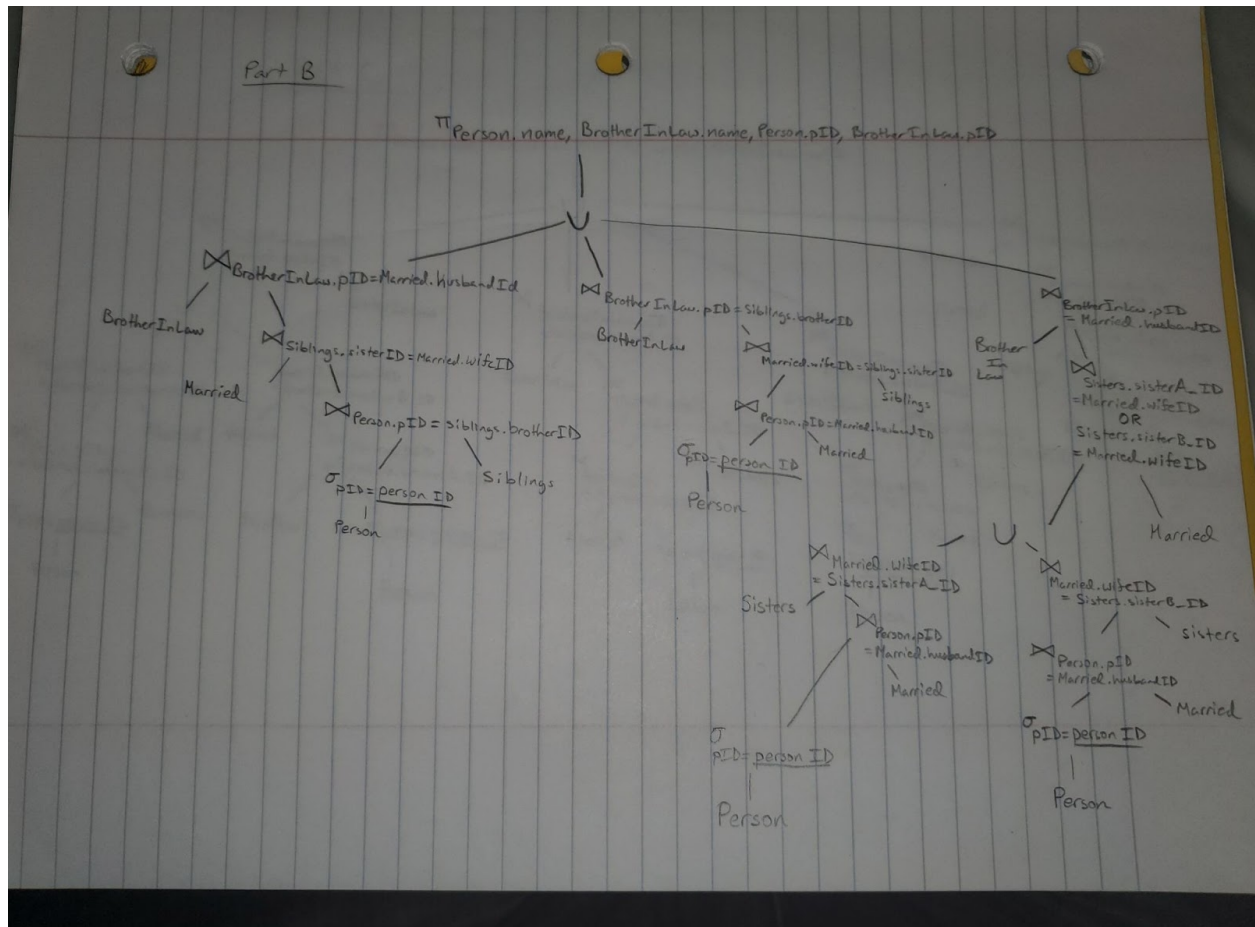 Part B
π Person.name, BrotherInLaw.name, Person.pID, BrotherInLaw.pID
∪
⋈ BrotherInLaw.pID=Married.husbandId
BrotherInLaw
⋈ Siblings.sisterID=Married.wifeID
Married
⋈ Person.pID=Siblings.brotherID
σ pID=person ID
Person
Siblings
⋈ BrotherInLaw.pID=Siblings.brotherID
BrotherInLaw
⋈ Married.wifeID=Siblings.sisterID
Siblings
⋈ Person.pID=Married.husbandID
Married
σ pID=person ID
Person
⋈ BrotherInLaw.pID
=Married.husbandID
Brother
In
Law
⋈
Sisters.sisterA_ID
=Married.wifeID
OR
Sisters.sisterB_ID
=Married.wifeID
Married
∪
⋈ Married.wifeID
=Sisters.sisterA_ID
Sisters
⋈ Person.pID
=Married.husbandID
Married
σ
pID=person ID
Person
⋈
Married.wifeID
=Sisters.sisterB_ID
sisters
⋈ Person.pID
=Married.husbandID
Married
σ pID=person ID
Person